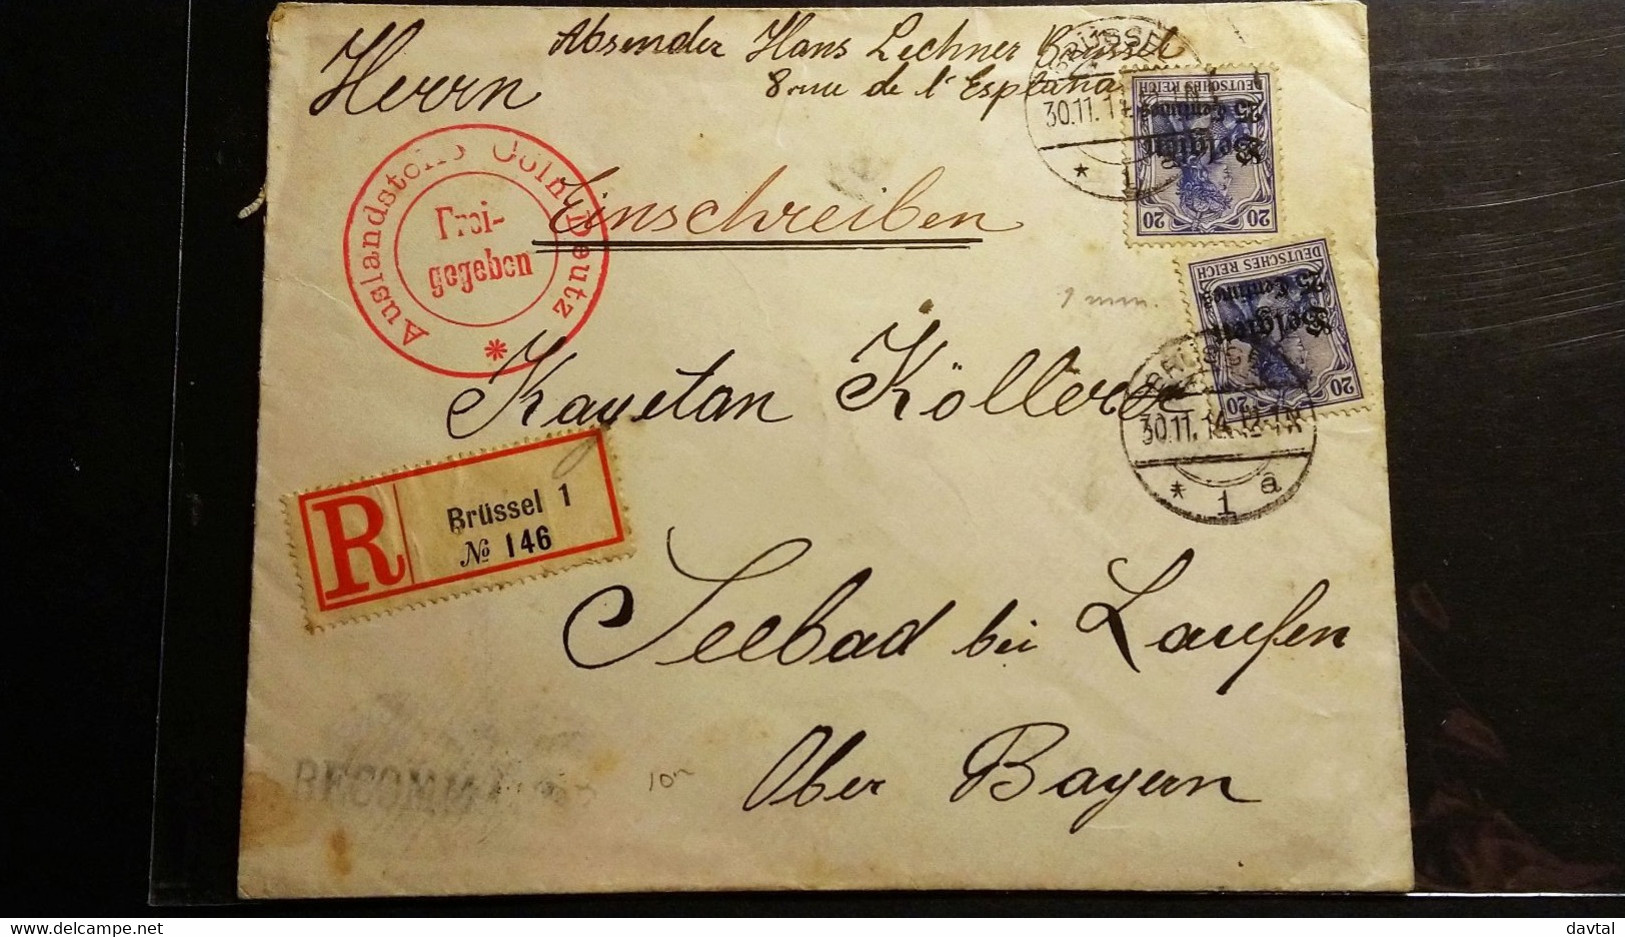 Absender Hans Lechner Brüssel
8 rue de l'Esplana
Herrn
Einschreiben
Auslandstelle Cöln Deutz
Frei-
gegeben
*
BRÜSSEL
30.11.14. 12-1N
* 1
DEUTSCHES REICH
Belgien
25 Centimes
20 20
DEUTSCHES REICH
Belgien
25 Centimes
20 20
1 mm.
BRÜSSEL
30.11.14. 12-1N
* 1 a
Kayetan Köllerer
R
Brüssel 1
№ 146
Seebad bei Laufen
Ober Bayern
RECOMM
delcampe.net
davtal